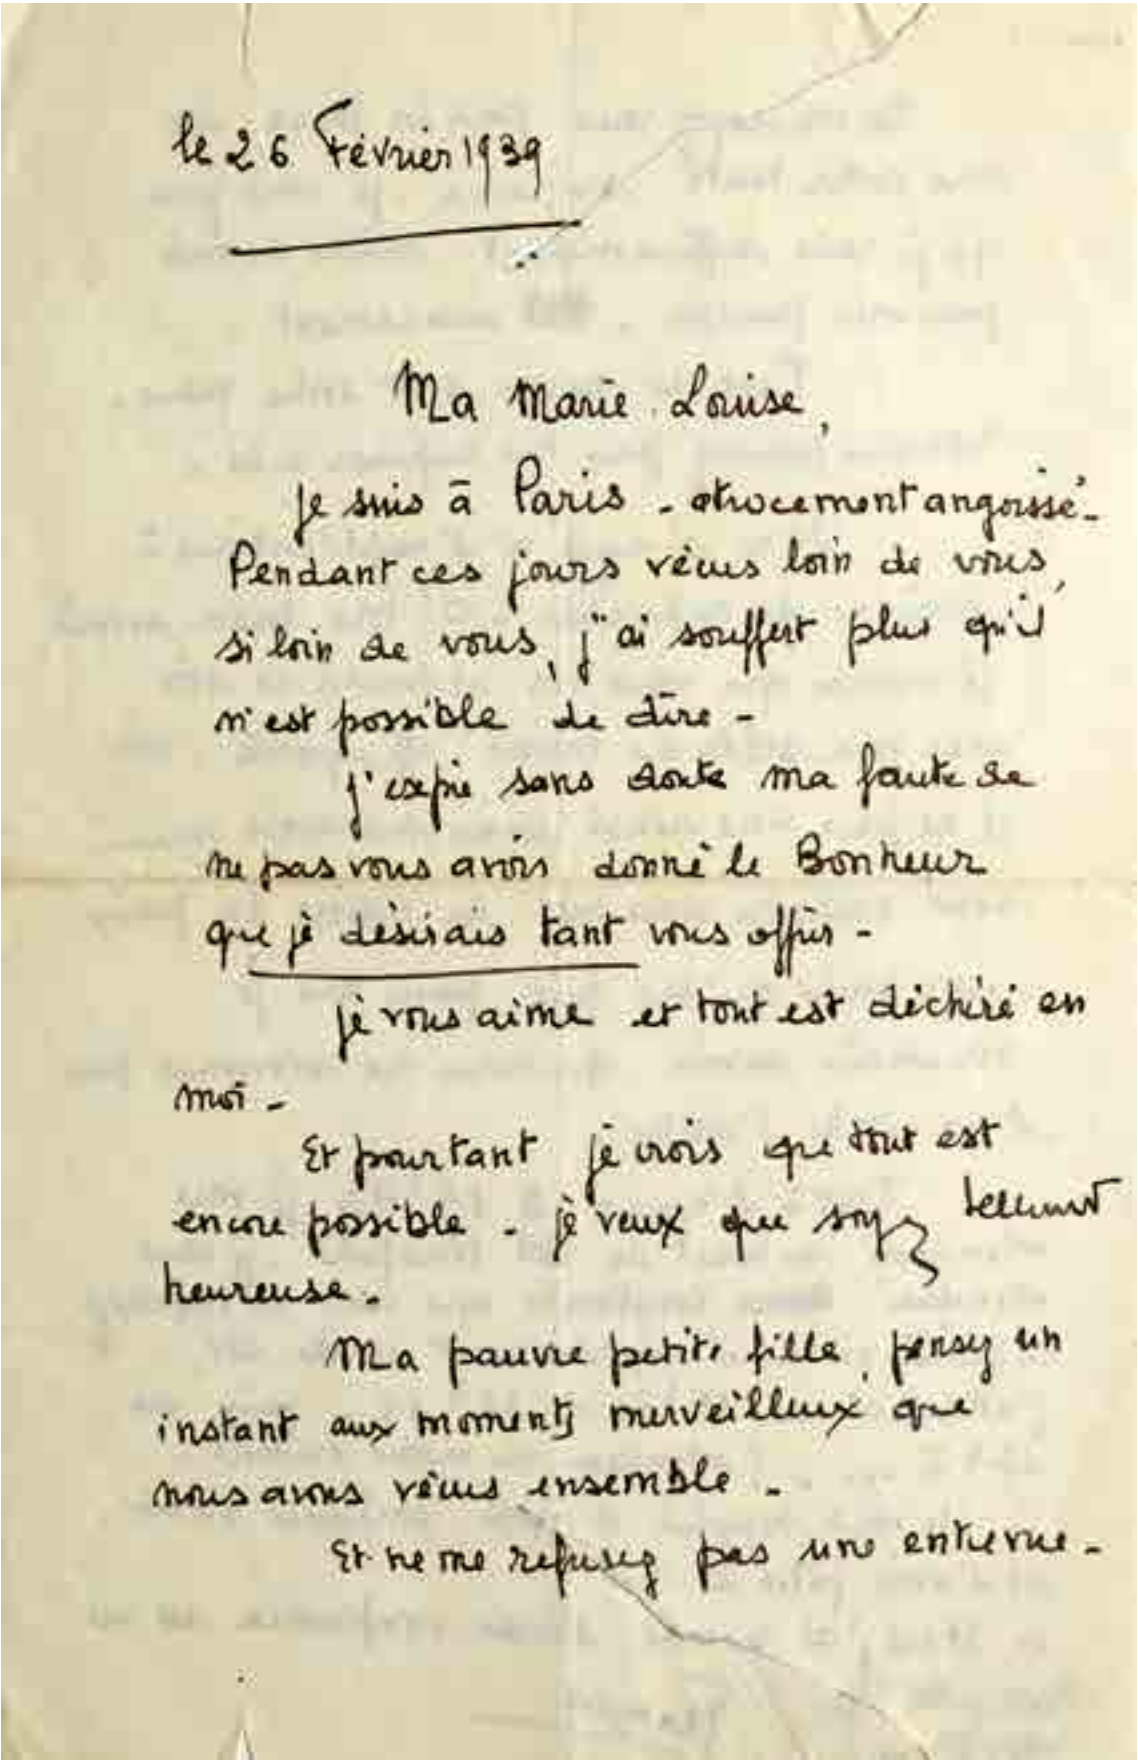 le 26 Février 1939
Ma Marie Louise,
Je suis à Paris - atrocement angoissé -
Pendant ces jours vécus loin de vous,
si loin de vous, j'ai souffert plus qu'il
n'est possible de dire -
J'expie sans doute ma faute de
ne pas vous avoir donné le Bonheur
que je désirais tant vous offrir -
Je vous aime et tout est déchiré en
moi -
Et pourtant je crois que tout est
encore possible - je veux que soyez tellement
heureuse -
Ma pauvre petite fille, pensez un
instant aux moments merveilleux que
nous avons vécus ensemble -
Et ne me refusez pas une entrevue -